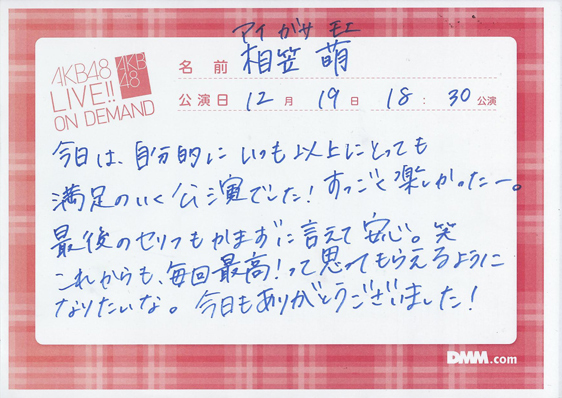 アイガサ モエ
名前 相笠 萌
AKB48
LIVE!!
ON DEMAND
AKB
48
公演日 12月 19日 18:30公演
今日は、自分的にいつも以上にとっても
満足のいく公演でした!すっごく楽しかったー。
最後のセリフもかまずに言えて安心。笑
これからも、毎回最高!って思ってもらえるように
なりたいな。今日もありがとうございました!
DMM.com